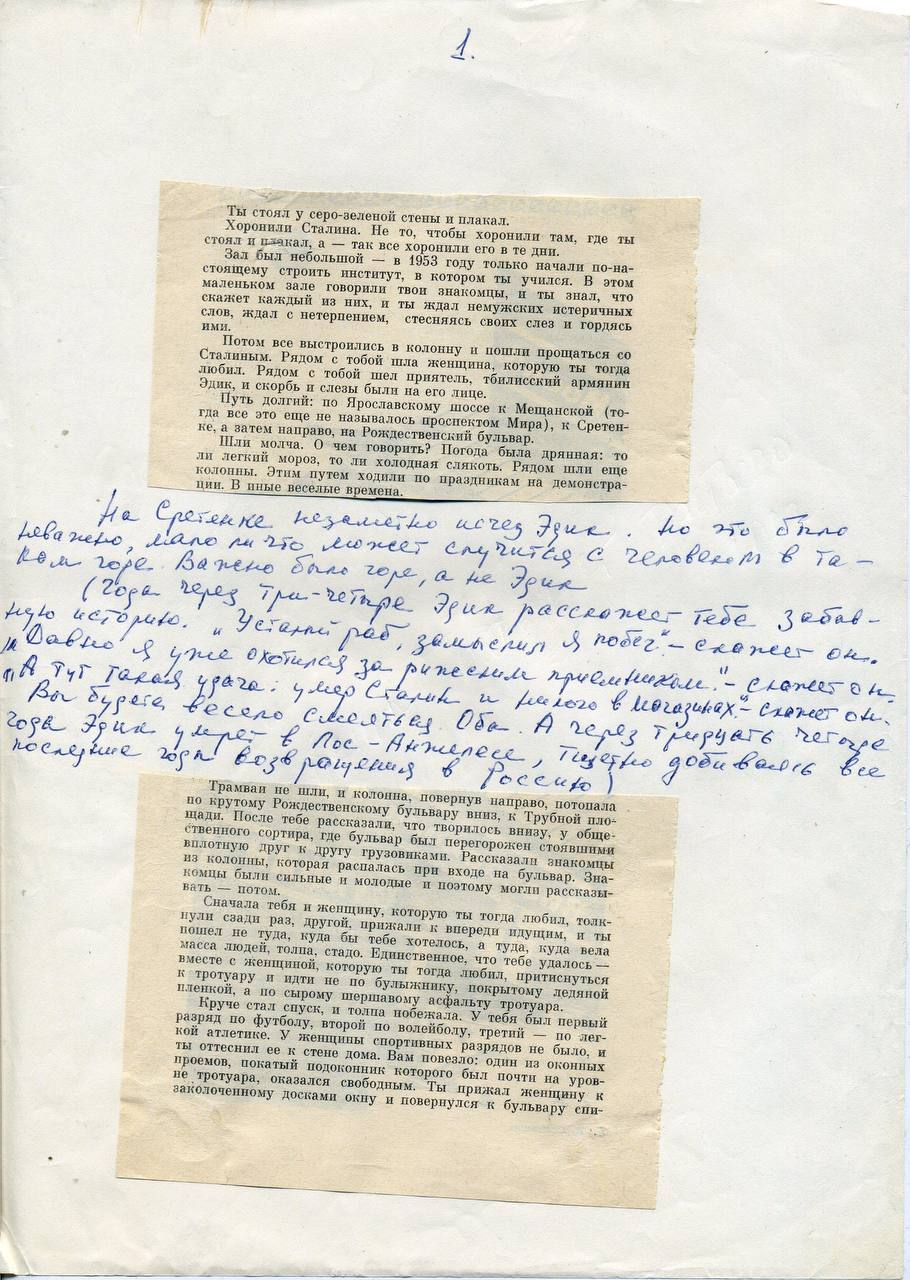 1.
Ты стоял у серо-зеленой стены и плакал.
Хоронили Сталина. Не то, чтобы хоронили там, где ты
стоял и плакал, а — так все хоронили его в те дни.
Зал был небольшой — в 1953 году только начали по-на-
стоящему строить институт, в котором ты учился. В этом
маленьком зале говорили твои знакомцы, и ты знал, что
скажет каждый из них, и ты ждал немужских истеричных
слов, ждал с нетерпением, стесняясь своих слез и гордясь
ими.
Потом все выстроились в колонну и пошли прощаться со
Сталиным. Рядом с тобой шла женщина, которую ты тогда
любил. Рядом с тобой шел приятель, тбилисский армянин
Эдик, и скорбь и слезы были на его лице.
Путь долгий: по Ярославскому шоссе к Мещанской (то-
гда все это еще не называлось проспектом Мира), к Сретен-
ке, а затем направо, на Рождественский бульвар.
Шли молча. О чем говорить? Погода была дрянная: то
ли легкий мороз, то ли холодная слякоть. Рядом шли еще
колонны. Этим путем ходили по праздникам на демонстра-
ции. В иные веселые времена.
На Сретенке незаметно исчез Эдик. Но это было
неважно, мало ли что может случится с человеком в та-
ком горе. Важно было горе, а не Эдик
(Года через три-четыре Эдик расскажет тебе забав-
ную историю. „Усталый раб, замыслил я побег“ – скажет он.
„Давно я уже охотился за рижским приемником.“ – скажет он
„А тут такая удача: умер Сталин и никого в магазинах“ – скажет он.
Вы будете весело смеяться. Оба. А через тридцать четыре
года Эдик умрет в Лос-Анжелесе, тщетно добиваясь все
последние годы возвращения в Россию)
Трамваи не шли, и колонна, повернув направо, потопала
по крутому Рождественскому бульвару вниз, к Трубной пло-
щади. После тебе рассказали, что творилось внизу, у обще-
ственного сортира, где бульвар был перегорожен стоявшими
вплотную друг к другу грузовиками. Рассказали знакомцы
из колонны, которая распалась при входе на бульвар. Зна-
комцы были сильные и молодые и поэтому могли рассказы-
вать — потом.
Сначала тебя и женщину, которую ты тогда любил, толк-
нули сзади раз, другой, прижали к впереди идущим, и ты
пошел не туда, куда бы тебе хотелось, а туда, куда вела
масса людей, толпа, стадо. Единственное, что тебе удалось —
вместе с женщиной, которую ты тогда любил, притиснуться
к тротуару и идти не по булыжнику, покрытому ледяной
пленкой, а по сырому шершавому асфальту тротуара.
Круче стал спуск, и толпа побежала. У тебя был первый
разряд по футболу, второй по волейболу, третий — по лег-
кой атлетике. У женщины спортивных разрядов не было, и
ты оттеснил ее к стене дома. Вам повезло: один из оконных
проемов, покатый подоконник которого был почти на уров-
не тротуара, оказался свободным. Ты прижал женщину к
заколоченному досками окну и повернулся к бульвару спи-